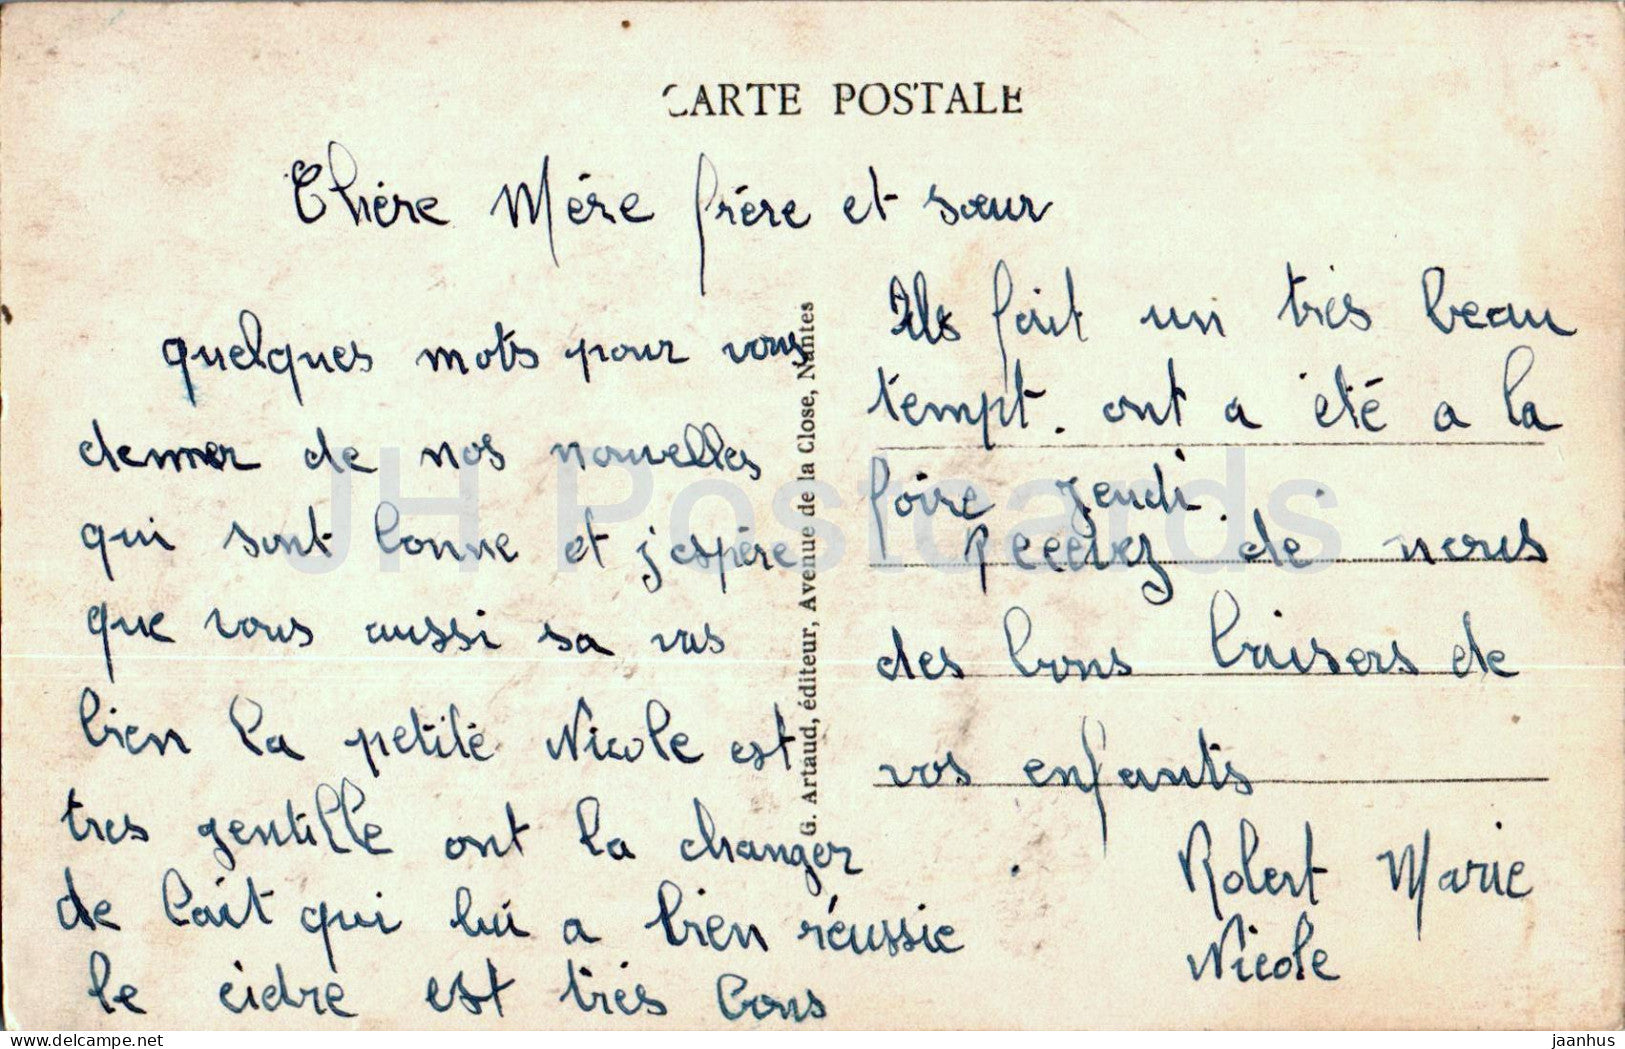 CARTE POSTALE
Chère Mère frère et sœur
quelques mots pour vous
denner de nos nouvelles
qui sont bonne et j'espère
que vous aussi sa vas
bien la petite Nicole est
tres gentille ont la changer
de lait qui lui a bien réussie
le cidre est très bons
G. Artaud, éditeur, Avenue de la Close, Nantes
Ils fait un très beau
tempt. ont a été a la
foire jeudi.
Recevez de nous
des bons baisers de
vos enfants
Robert Marie
Nicole
JH Postcards
delcampe.net
jaanhus